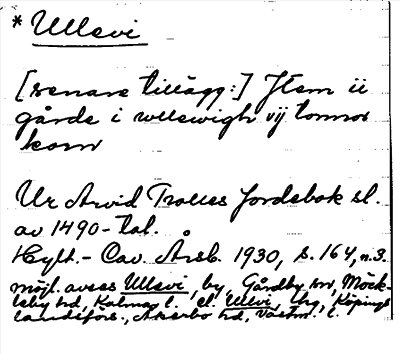 * Ullevi
[senare tillägg:] Item ii
gårde i wllewigh vij tonnor
korn
Ur Arvid Trolles Jordebok sl.
av 1490-tal.
Hylt.-Cav. Årsb. 1930, s. 164, n. 3.
möjl. avses Ullevi, by, Gårdby sn, Möck-
leby hd, Kalmar l. el. Ullvi, hg, Köpings
landsförs., Åkerbo hd, Västm. l.